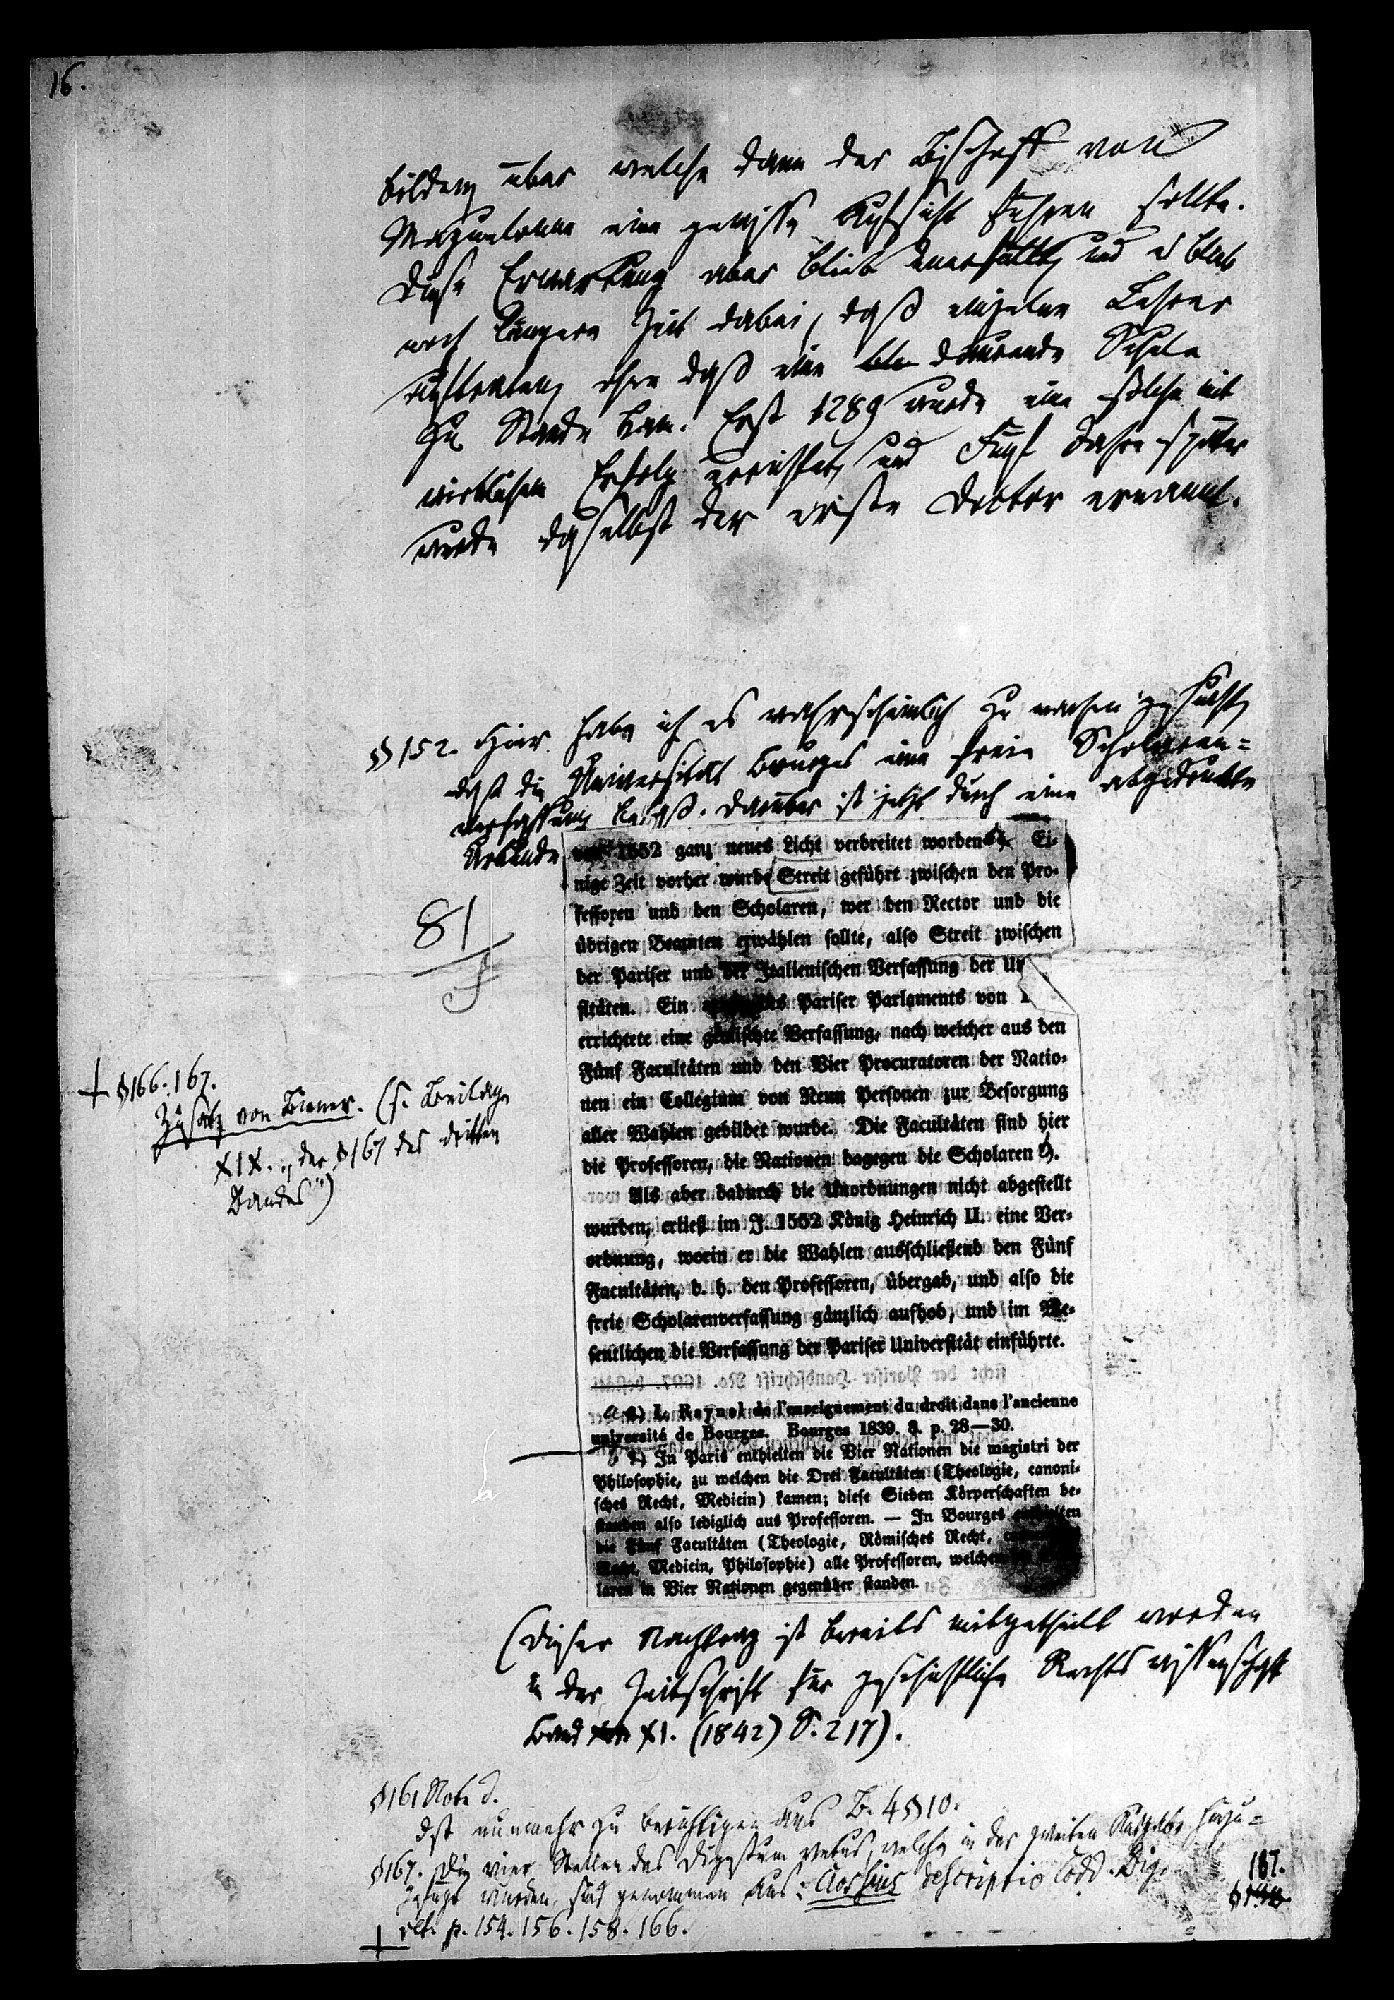 16.
bilden, über welche dann der Bischoff von
Maguelonne eine gewisse Aufsicht führen sollte.
Diese Erwartung aber blieb unerfüllt, und es blieb
noch längere Zeit dabei, daß einzelne Lehrer
auftraten, ohne daß eine dauernde Schule
zu Stande kam. Erst 1289 wurde eine solche mit
wirklichem Erfolg errichtet, und Fünf Jahre später
wurde daselbst der erste Doctor ernannt.
§ 152. Hier habe ich es wahrscheinlich zu machen gesucht,
daß die Universität Bourges eine freie Scholaren-
verfassung besaß. Darüber ist jetzt durch eine abgedruckte
Urkunde
von 1552 ganz neues Licht verbreitet worden. Ei-
nige Zeit vorher wurde Streit geführt zwischen den Pro-
fessoren und den Scholaren, wer den Rector und die
übrigen Beamten erwählen sollte, also Streit zwischen
der Pariser und der Italienischen Verfassung der
sitäten. Ein Pariser Parlaments von
errichtete eine gemischte Verfassung, nach welcher aus den
Fünf Facultäten und den Vier Procuratoren der Natio-
nen ein Collegium von Neun Personen zur Besorgung
aller Wahlen gebildet wurde. Die Facultäten sind hier
die Professoren, die Nationen dagegen die Scholaren b).
Als aber dadurch die Unordnungen nicht abgestellt
wurden, erließ im J. 1552 König Heinrich II. eine Ver-
ordnung, worin er die Wahlen ausschließend den Fünf
Facultäten, d. h. den Professoren, übergab, und also die
freie Scholarenverfassung gänzlich aufhob, und im We-
sentlichen die Verfassung der Pariser Universität einführte.
a) L. Raynal de l'enseignement du droit dans l'ancienne
université de Bourges. Bourges 1839. 8. p. 28—30.
b) In Paris enthielten die Vier Nationen die magistri der
Philosophie, zu welchen die Drei Facultäten (Theologie, canoni-
sches Recht, Medicin) kamen; diese Sieben Körperschaften be-
standen also lediglich aus Professoren. — In Bourges enthielten
die Fünf Facultäten (Theologie, Römisches Recht,
Recht, Medicin, Philosophie) alle Professoren, welchen
laren in Vier Nationen gegenüber standen.
81
+ § 166. 167.
Zusatz von Biener. (s. Beilage
XIX. „der § 167 des dritten
Bandes")
(Dieser Nachtrag ist bereits mitgetheilt worden
in der Zeitschrift für geschichtliche Rechtswissenschaft
Band XI. (1842) S. 217).
§ 161 Note d.
Ist nunmehr zu berichtigen aus B. 4 § 10.
§ 167. Die vier Stellen des Digestum vetus, welche in der zweiten Ausgabe hinzu-
gefügt wurden, sind genommen aus: Clossius descriptio Codd. Dig.
vet. p. 154. 156. 158. 166.
+
167.